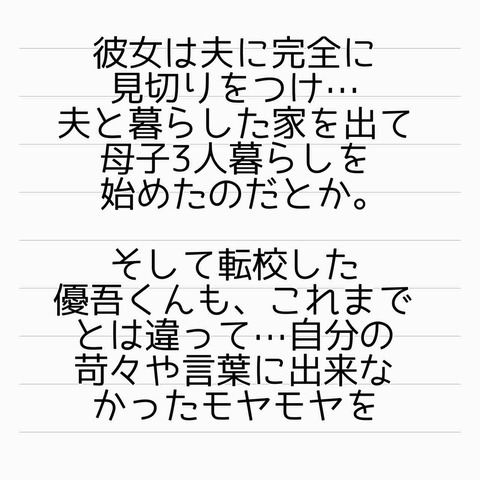 彼女は夫に完全に
見切りをつけ…
夫と暮らした家を出て
母子3人暮らしを
始めたのだとか。
そして転校した
優吾くんも、これまで
とは違って…自分の
苛々や言葉に出来な
かったモヤモヤを